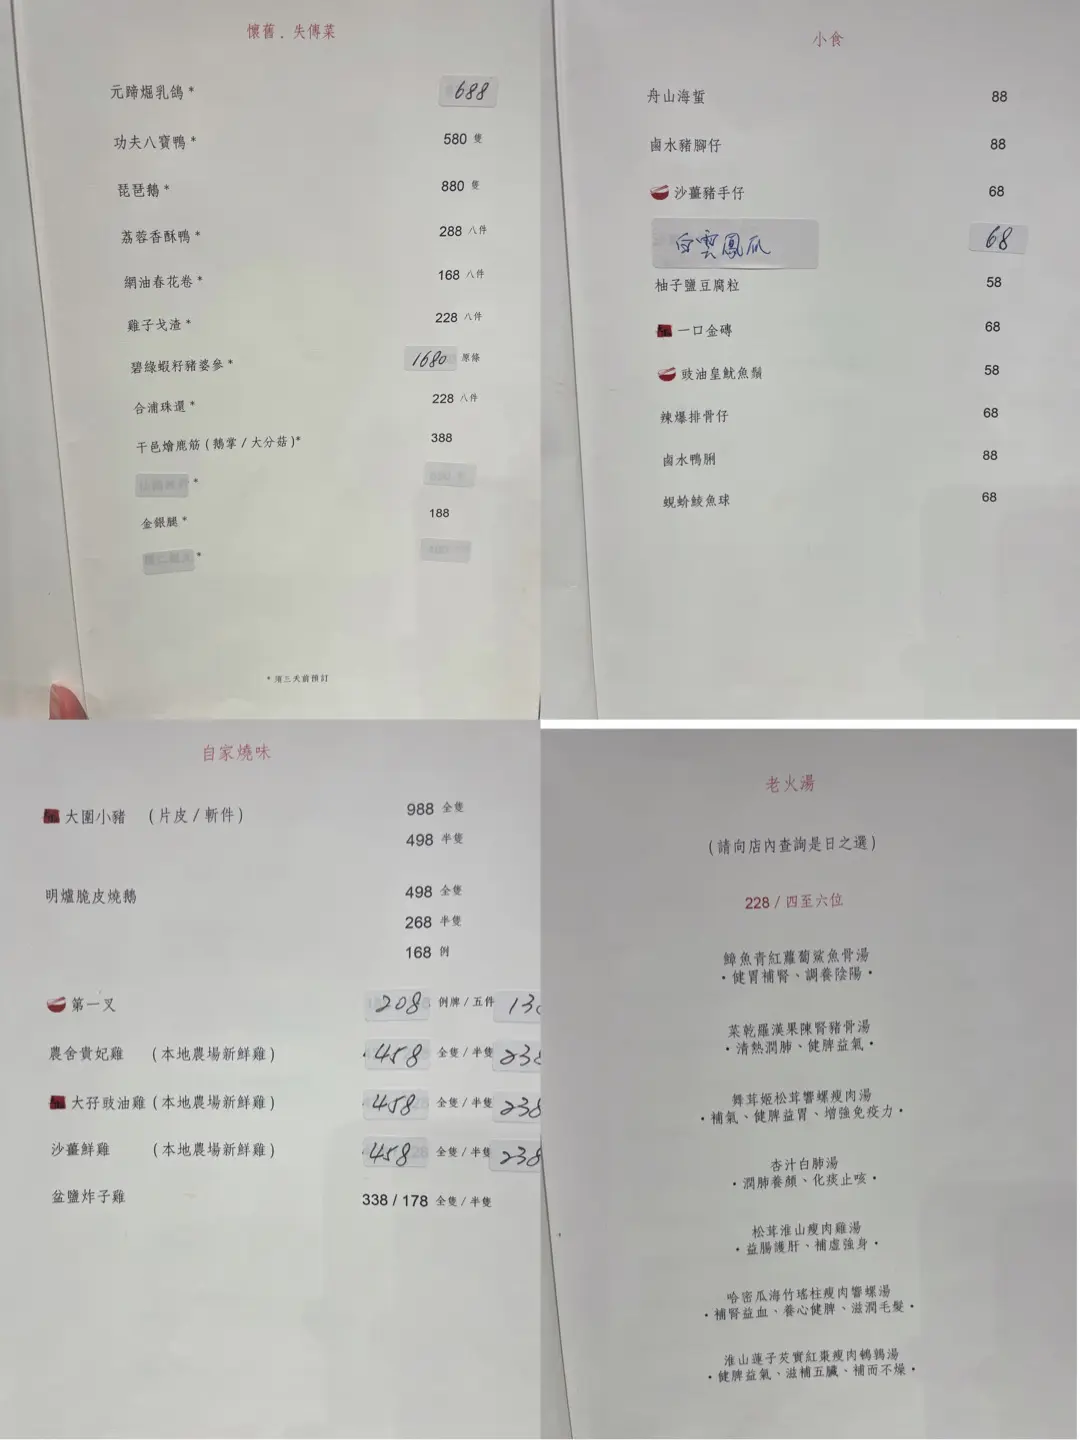 懷舊．失傳菜
元蹄焗乳鴿 * 688
功夫八寶鴨 * 580 隻
琵琶鵝 * 880 隻
荔蓉香酥鴨 * 288 八件
網油春花卷 * 168 八件
雞子戈渣 * 228 八件
碧綠蝦籽豬婆參 * 1680 原條
合浦珠還 * 228 八件
干邑燴鹿筋 (鵝掌 / 大分菇)* 388
*
金銀腿 * 188
*
* 需三天前預訂
小食
舟山海蜇 88
鹵水豬腳仔 88
沙薑豬手仔 68
白雲鳳爪 68
柚子鹽豆腐粒 58
一口金磚 68
豉油皇魷魚鬚 58
辣爆排骨仔 68
鹵水鴨脷 88
蜆蚧鯪魚球 68
自家燒味
大園小豬 (片皮 / 斬件) 988 全隻
498 半隻
明爐脆皮燒鵝 498 全隻
268 半隻
168 例
第一叉 208 例牌 / 五件
農舍貴妃雞 (本地農場新鮮雞) 458 全隻 / 半隻
大孖豉油雞 (本地農場新鮮雞) 458 全隻 / 半隻 238
沙薑鮮雞 (本地農場新鮮雞) 458 全隻 / 半隻 238
盆鹽炸子雞 338 / 178 全隻 / 半隻
老火湯
(請向店內查詢是日之選)
228 / 四至六位
鱆魚青紅蘿蔔鯊魚骨湯
・健胃補腎、調養陰陽・
菜乾羅漢果陳腎豬骨湯
・清熱潤肺、健脾益氣・
舞茸姬松茸響螺瘦肉湯
・補氣、健脾益胃、增強免疫力・
杏汁白肺湯
・潤肺養顏、化痰止咳・
松茸淮山瘦肉雞湯
・益腸護肝、補虛強身・
哈密瓜海竹瑤柱瘦肉響螺湯
・補腎益血、養心健脾、滋潤毛髮・
淮山蓮子芡實紅棗瘦肉鵪鶉湯
・健脾益氣、滋補五臟、補而不燥・